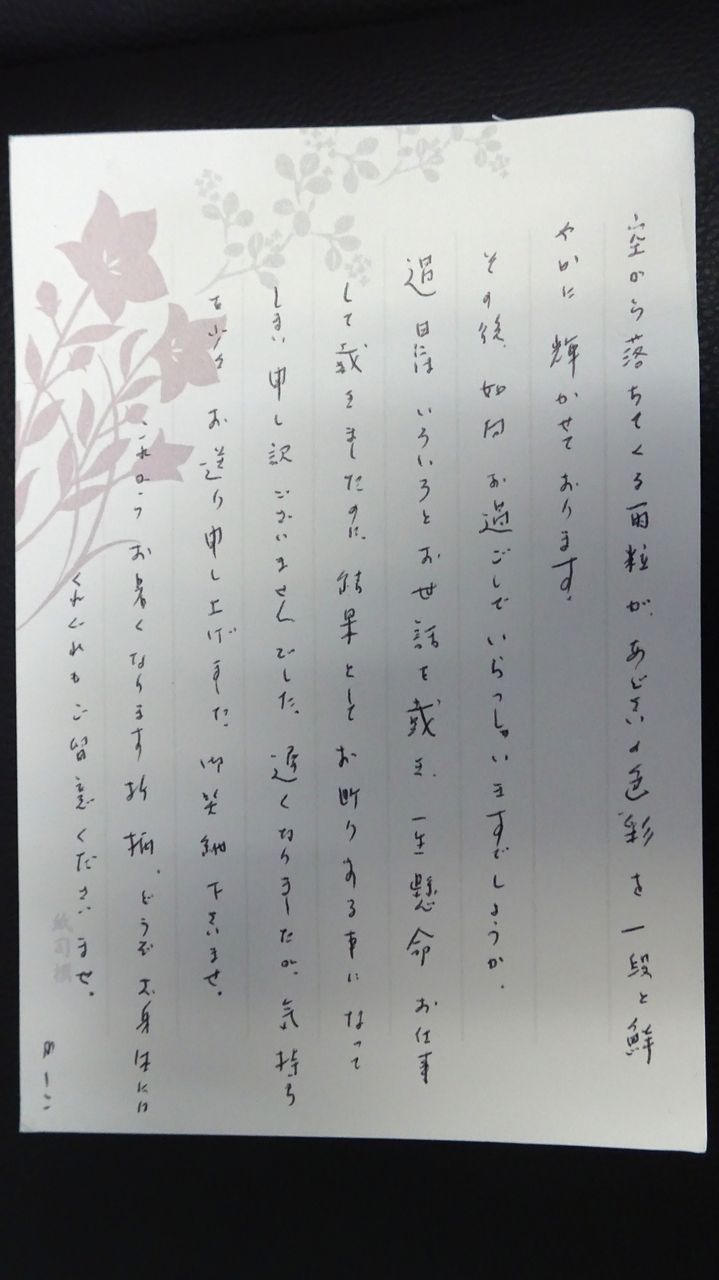 空から落ちてくる雨粒が、あじさいの色彩を一段と鮮
やかに輝かせております。
その後、如何お過ごしでいらっしゃいますでしょうか。
過日には いろいろとお世話を戴き、一生懸命お仕事
して戴きましたのに、結果としてお断りする事になって
しまい申し訳ございませんでした。遅くなりましたが、気持ち
を少々お送り申し上げました。御笑納下さいませ。
これからお暑くなります折柄、どうぞお身体には
くれぐれもご留意くださいませ。
かしこ
紙司撰